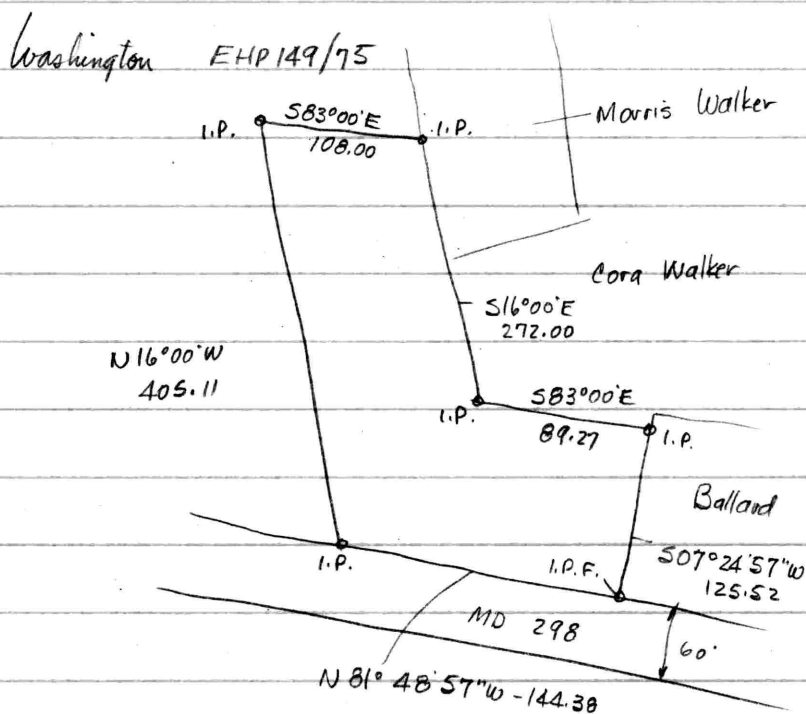 Washington EHP 149/75
S83°00'E
I.P.
108.00
I.P.
Morris Walker
Cora Walker
S16°00'E
272.00
N16°00'W
405.11
I.P.
S83°00'E
89.27
I.P.
Ballard
S07°24'57"W
125.52
I.P.
I.P.F.
MD 298
60'
N81°48'57"W -144.38